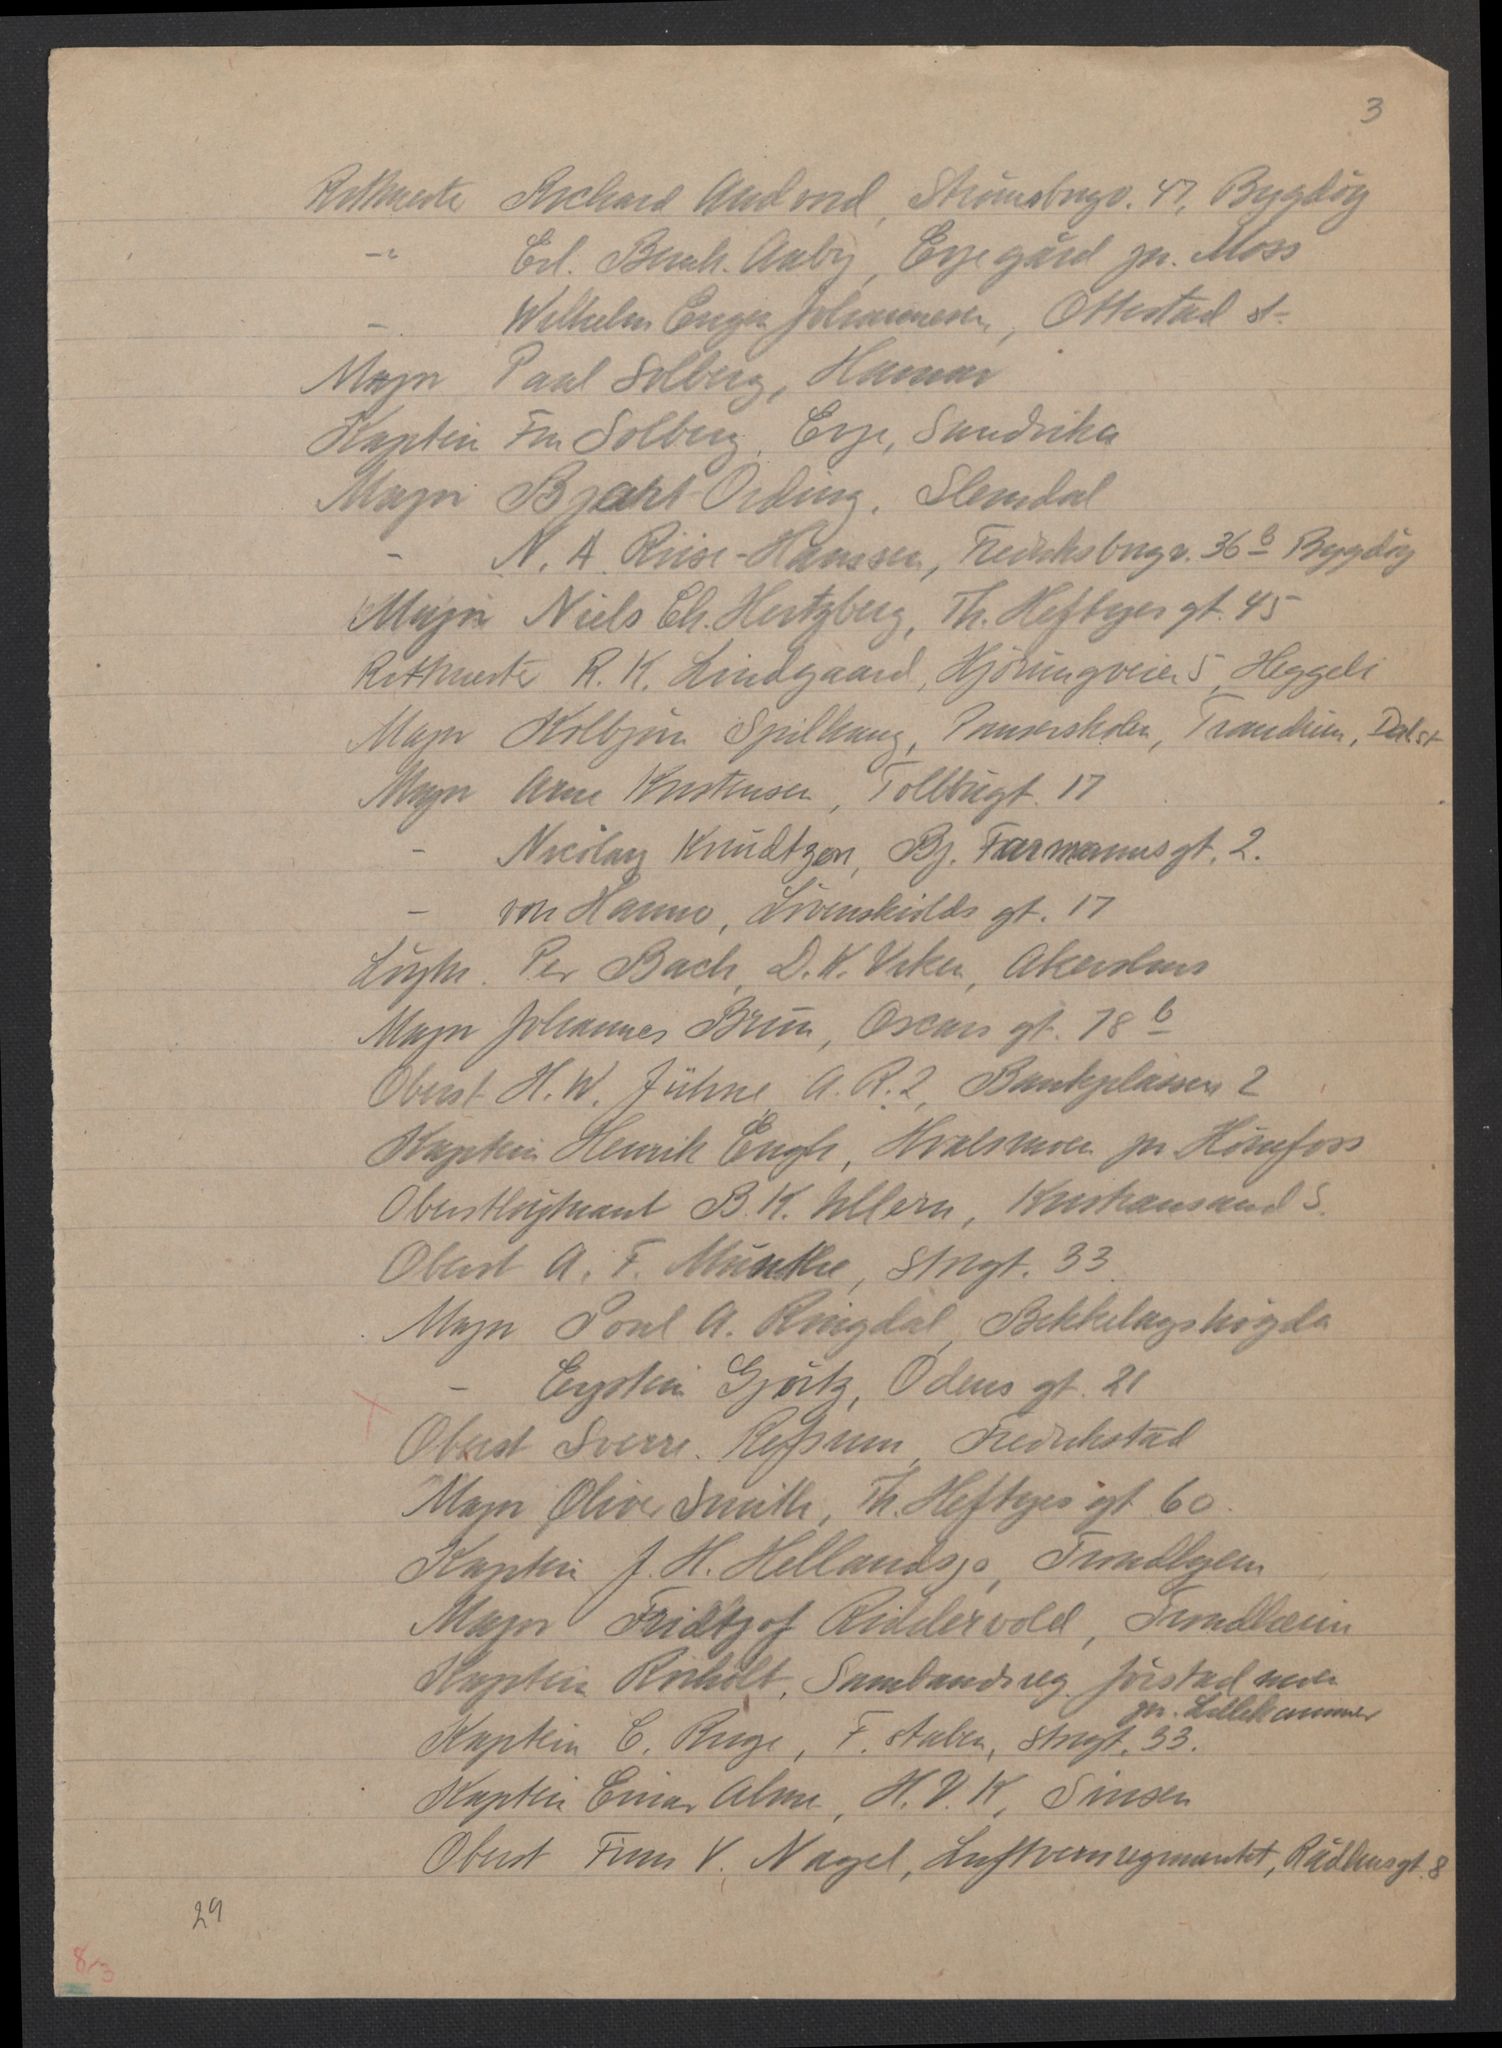 3
Ritmester Richard Andvord, Strømsborgv. 47, Bygdøy
-"- Erl. Bernh. Aaby, Evje gård pr. Moss
- Wilhelm Enger Johannesen, Ottestad st.
Major Paal Solberg, Hamar
Kaptein Fr. Solberg, Evje, Sandvika
Major Bjart Ording, Slemdal
- N. A. Riise-Hanssen, Fredriksborgv. 36 b Bygdøy
Major Niels Ch. Hertzberg, Th. Heftyes gt. 45
Ritmester R. K. Lindgaard, Hjørungveien 5, Heggeli
Major Kolbjørn Spilhaug, Pionerskolen, Trandum, Dal st
Major Arne Kristensen, Tollbugt. 17
- Nicolay Knudtzon, Bj. Farmannsgt. 2.
- von Hanno, Løvenskiolds gt. 17
Løytn. Per Bach, D. K. Viken, Akershus
Major Johannes Brun, Oscars gt. 78 b
Oberst H. W. Jühne, A. R. 2, Bankplassen 2
Kaptein Henrik Engh, Hvalsmoen pr Hønefoss
Oberstløytnant B. K. Ullern, Kristiansand S.
Oberst A. F. Munthe, Storgt. 33
Major Poul A. Ringdal, Bekkelagshøgda
- Eystein Gjørtz, Odens gt. 21
x Oberst Sverre Refsum, Fredrikstad
Major Oliver Smith, Th. Heftyes gt 60.
Kaptein J. H. Hellandsjø, Trondhjem
Major Fridtjof Riddervold, Trondheim
Kaptein Risholt, Sambandsreg. Jørstadmoen
pr. Lillehammer
Kaptein C. Ruge, F. staben, Storgt. 33.
Kaptein Einar Alme, H. V. K, Sinsen
Oberst Finn V. Nagel, Luftvernregimentet, Rådhusgt. 8
29
8/3